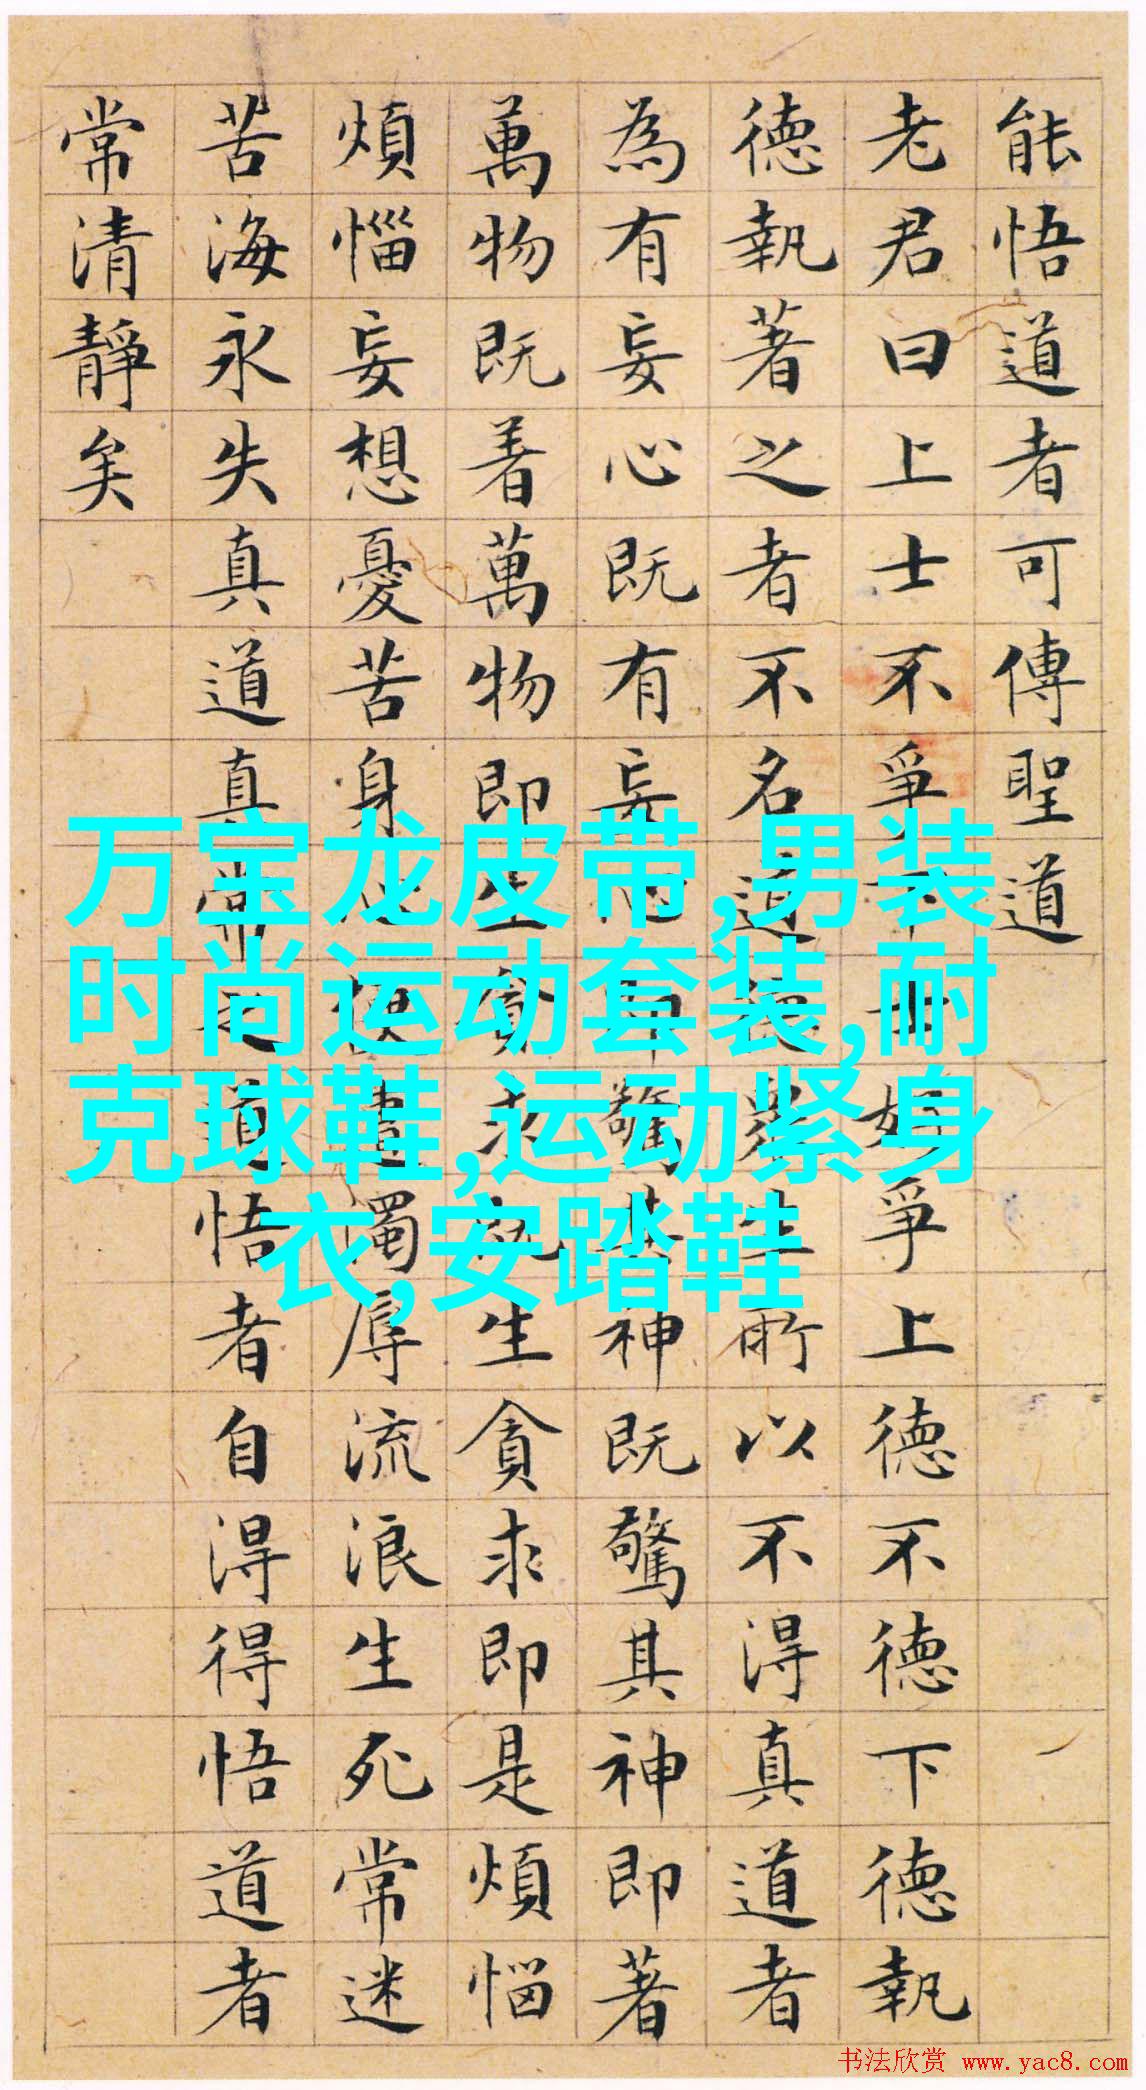 能悟道者可傳聖道
老君曰上士不爭下士好爭上德不德下德執
德執著之者不名道德衆生所以不得真道者
為有妄心既有妄心即驚其神既驚其神即著
萬物既着萬物即生貪求既生貪求即是煩惱
煩惱妄想憂苦身心便遭濁辱流浪生死常迷
苦海永失真道真常之道悟者自得得悟道者
常清靜矣
万宝龙皮带,男装
时尚运动套装,耐
克球鞋,运动紧身
衣,安踏鞋
书法欣赏 www.yac8.com